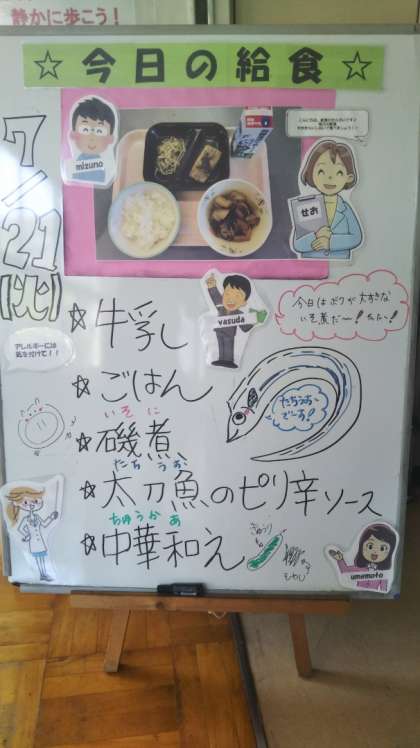 静かに歩こう！
☆今日の給食☆
mizuno
せお
7/21
【火】
yasuda
今日はボクが大好きな
いそ煮だ～！
☆牛乳
アレルギーには
気を付けて！！
☆ごはん
いそ に
☆磯煮
たちうお
です！
たち うお
☆太刀魚のピリ辛ソース
ちゅうか あ
☆中華和え
きゅうり
もやし
umemoto